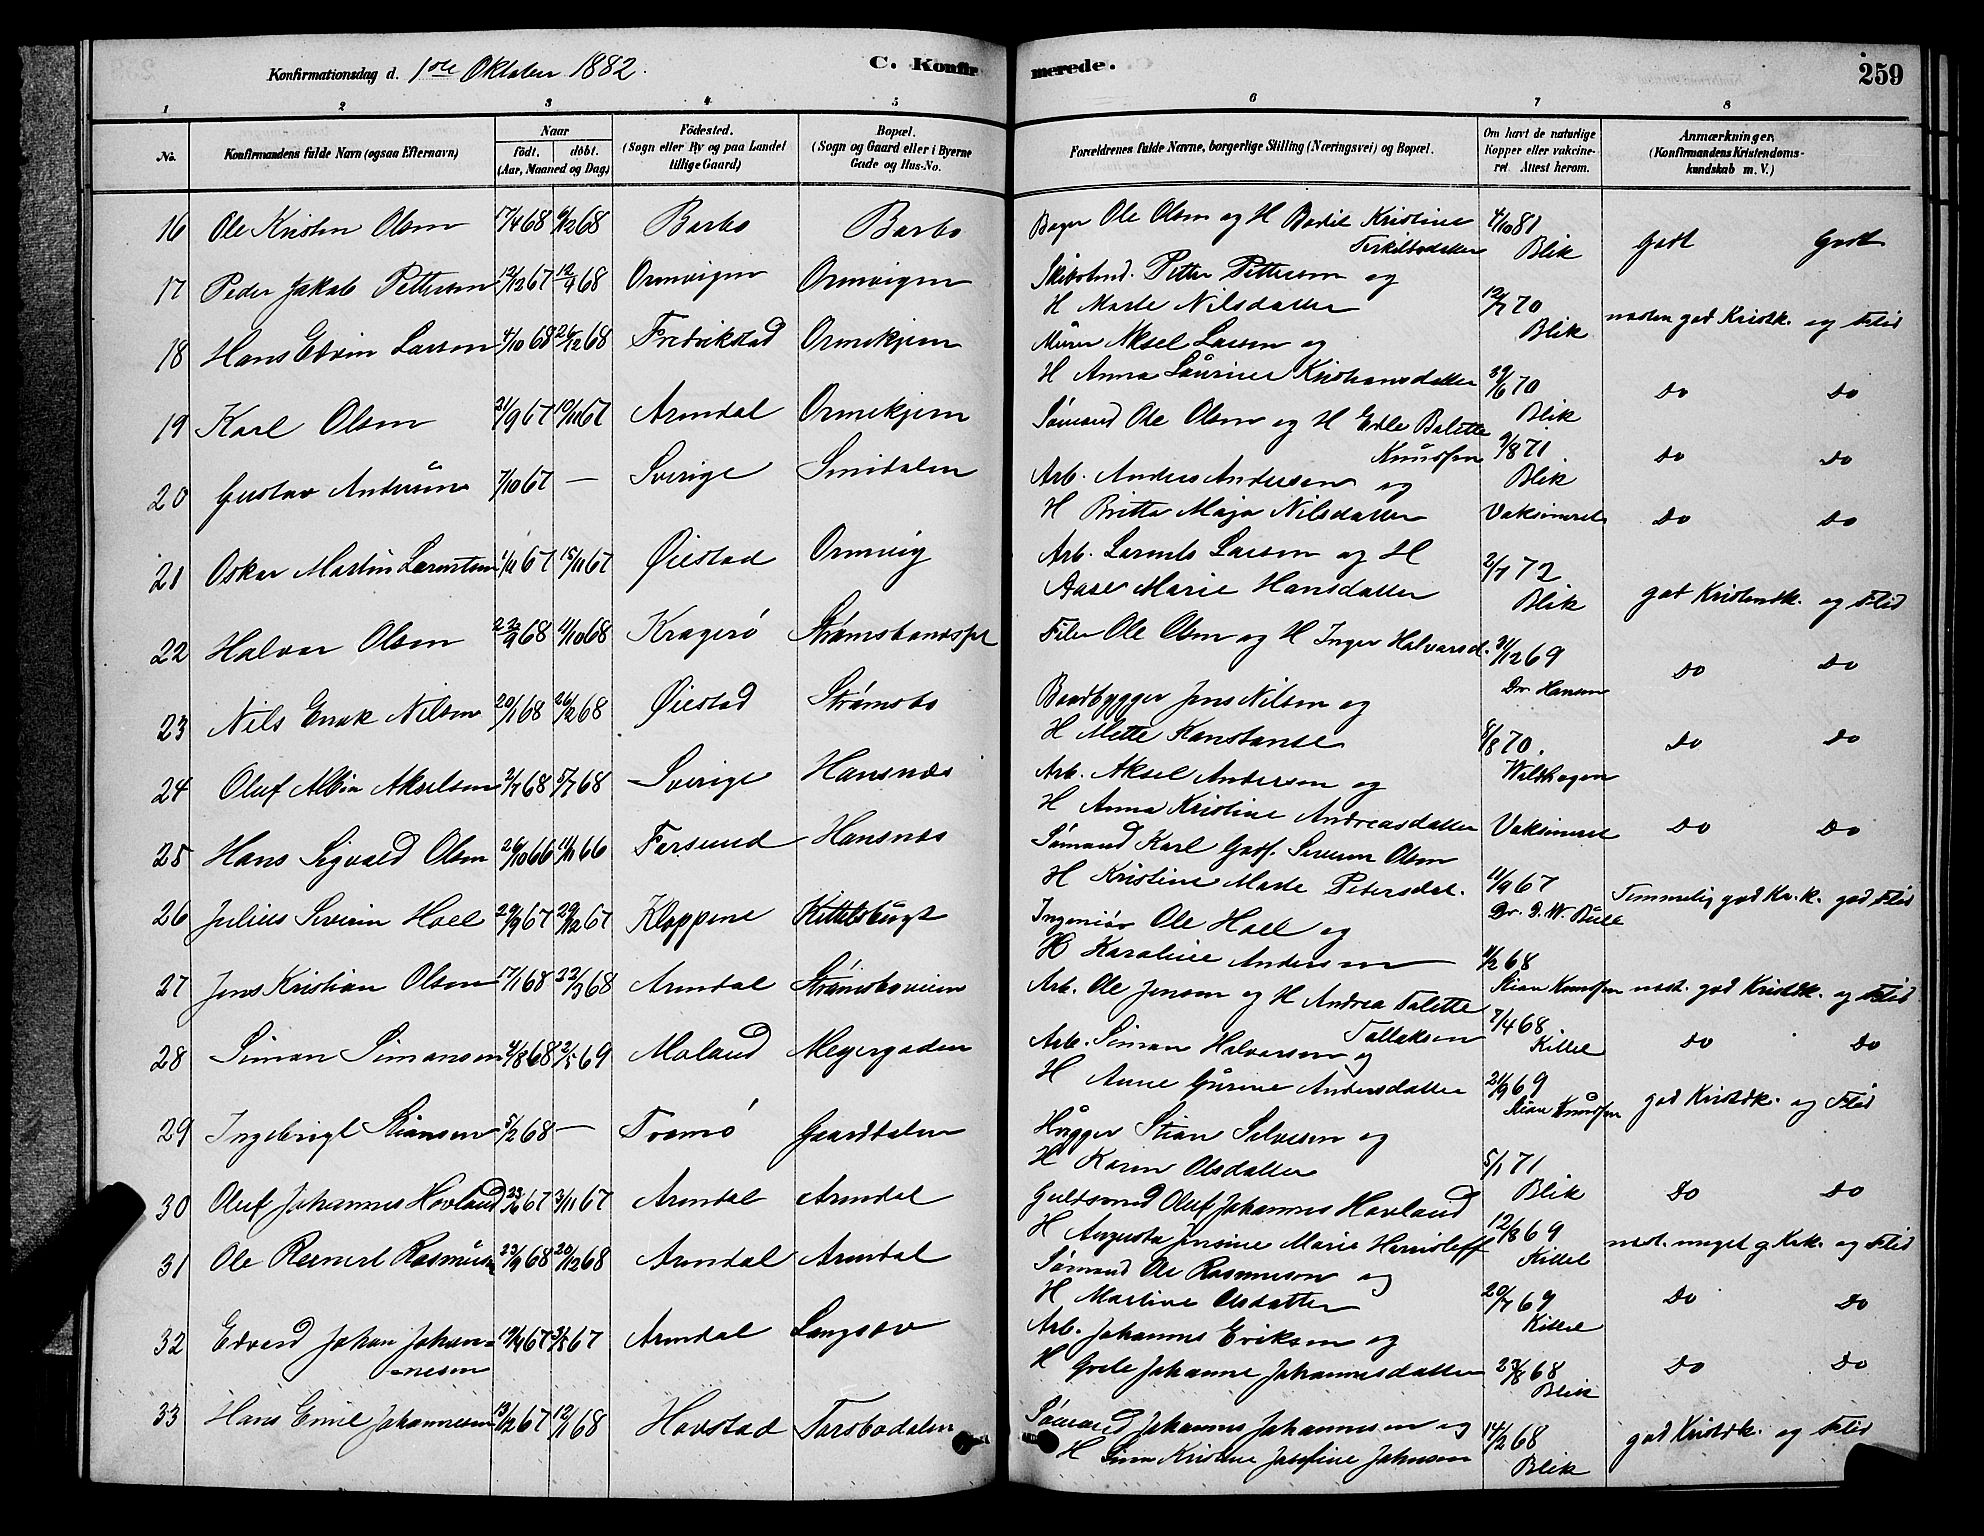 Konfirmationsdag d. 1ste Oktober 1882.
C. Konfirmerede.
259
1 2 3 4 5 6 7 8
No.
Konfirmandens fulde Navn (ogsaa Efternavn)
Naar
født. døbt.
(Aar, Maaned og Dag)
Fødested.
(Sogn eller By og paa Landet
tillige Gaard)
Bopæl.
(Sogn og Gaard eller i Byerne
Gade og Hus-No.
Forældrenes fulde Navne, borgerlige Stilling (Næringsvei) og Bopæl.
Om havt de naturlige
Kopper eller vakcine-
ret. Attest herom.
Anmærkninger.
(Konfirmandens Kristendoms-
kundskab m. V.)
16 Ole Kristen Olsen 17/4 68 Barbo Barbo Ole Olsen og H Bodil Kristine 4/10 81
Terkilsdatter Blik Godt Godt
17 Peder Jakob Pettersen 12/12 67 12/4 68 Ormvigen Ormvigen Petter Pettersen og
H Marte Nilsdatter 12/7 70
Blik næsten god Kristk. og Flid
18 Hans Edvin Larsen 4/10 68 26/12 68 Fredrikstad Ormekjern Murer Aksel Larsen og
H Anna Laurine Kristiansdatter 70
Blik Do Do
19 Karl Olsen 21/9 67 67 Arendal Ormekjern Sømand Ole Olsen og H Edle
Knudsen 9/8 71
Blik Do Do
20 Gustav Andersen 7/10 67 — Sverige Smidalen Arb. Anders Andersen og
H Britta Maja Nilsdatter Vaksineret Do Do
21 Oskar Martin 67 67 Øiestad Ormvig Arb. Larsen og H
Aase Marie Hansdatter 2/7 72
Blik god Kristendk. og Flid
22 Halvor Olsen 68 11/10 68 Kragerø Ole Olsen og H Inger Halvorsd. 31/12 69
Dr. Hansen Do Do
23 Nils Enok Nilsen 20/1 68 26/2 68 Øiestad Strømsbo Baadbygger Jens Nilsen og
H Mette Konstanse 8/8 70.
Do Do
24 Oluf Albin Akselsen 2/7 68 5/7 68 Sverige Hansnæs Arb. Aksel Andersen og
H Anna Kristine Andreasdatter Vaksineret Do Do
25 Hans Sigvald Olsen 26/10 66 66 Farsund Hansnæs Sømand Karl Severin Olsen
H Kristine Marte Petersdat. 11/9 67
Temmelig god Kr.k. god Flid
26 Julius Severin Holl 29/9 67 29/12 67 Kloppene Kittelsbugt Ingeniør Ole Holl og
H Karoline Andersen 68
Stian Knudsen næst. god Kristdk. og Flid
27 Jens Kristian Olsen 17/1 68 22/3 68 Arendal Strømsboveien Arb. Ole Jensen og H Andrea Talette
Tallaksen 7/4 68
Kittel Do Do
28 Simon Simonsen 4/8 68 69 Moland Meyergaden Arb. Simon Halvorsen og
H Anne Gurine Andersdatter 21/9 69
Stian Knudsen god Kristdk. og Flid
29 Ingebrigt Stiansen 5/2 68 — Tromø Gaardsalen Hugger Stian Salvesen og
H Karen Olsdatter 5/1 71
Blik Do Do
30 Oluf Johannes Hovland 67 3/11 67 Arendal Arendal Guldsmed Oluf Johannes Hovland
H Augusta Jensine Marie 12/8 69
Kittel næst. meget g. Kr.k. og Flid
31 Ole Reinert Rasmusen 23/9 68 20/12 68 Arendal Arendal Sømand Ole Rasmusen og
H Martine Olsdatter 20/7 69
Kittel Do Do
32 Edvard Johan Johan-
nesen 67 67 Arendal Langsæv Arb. Johannes Eriksen og
H Grete Johanne Johannesdatter 23/8 68
Blik Do Do
33 Hans Emil Johannesen 13/12 67 12/1 68 Havstad Torsbudalen Sømand Johannes Johannesen og
H Kristine Josefine Johnsen 14/2 68
Blik god Kristdk. og Flid